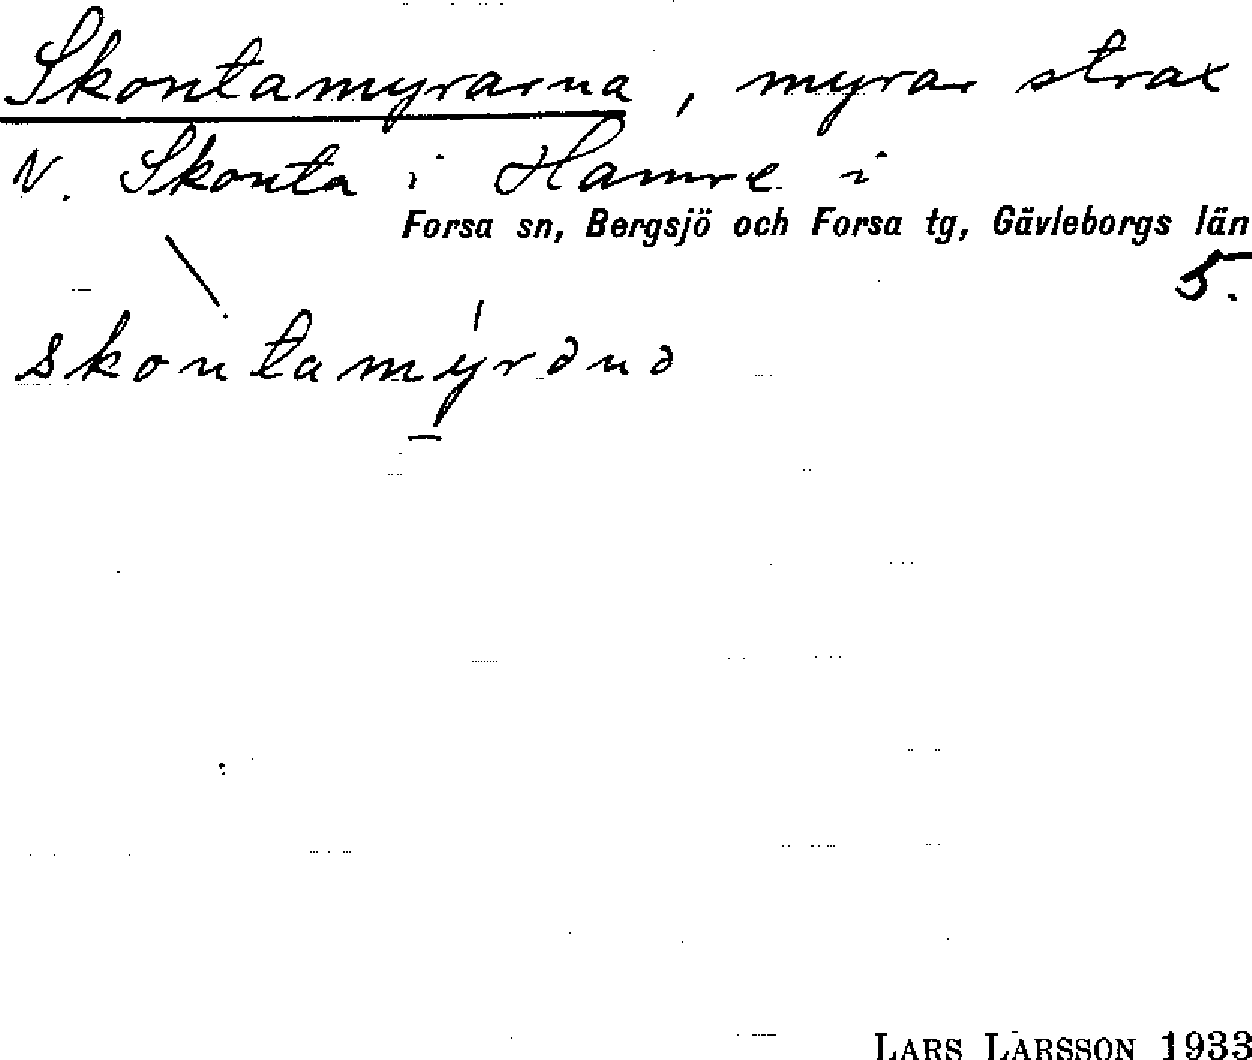 Skontamyrarna, myrar strax
N. Skonta i Hamre i
Forsa sn, Bergsjö och Forsa tg, Gävleborgs län
5.
skontamyrǝnǝ
LARS LARSSON 1933